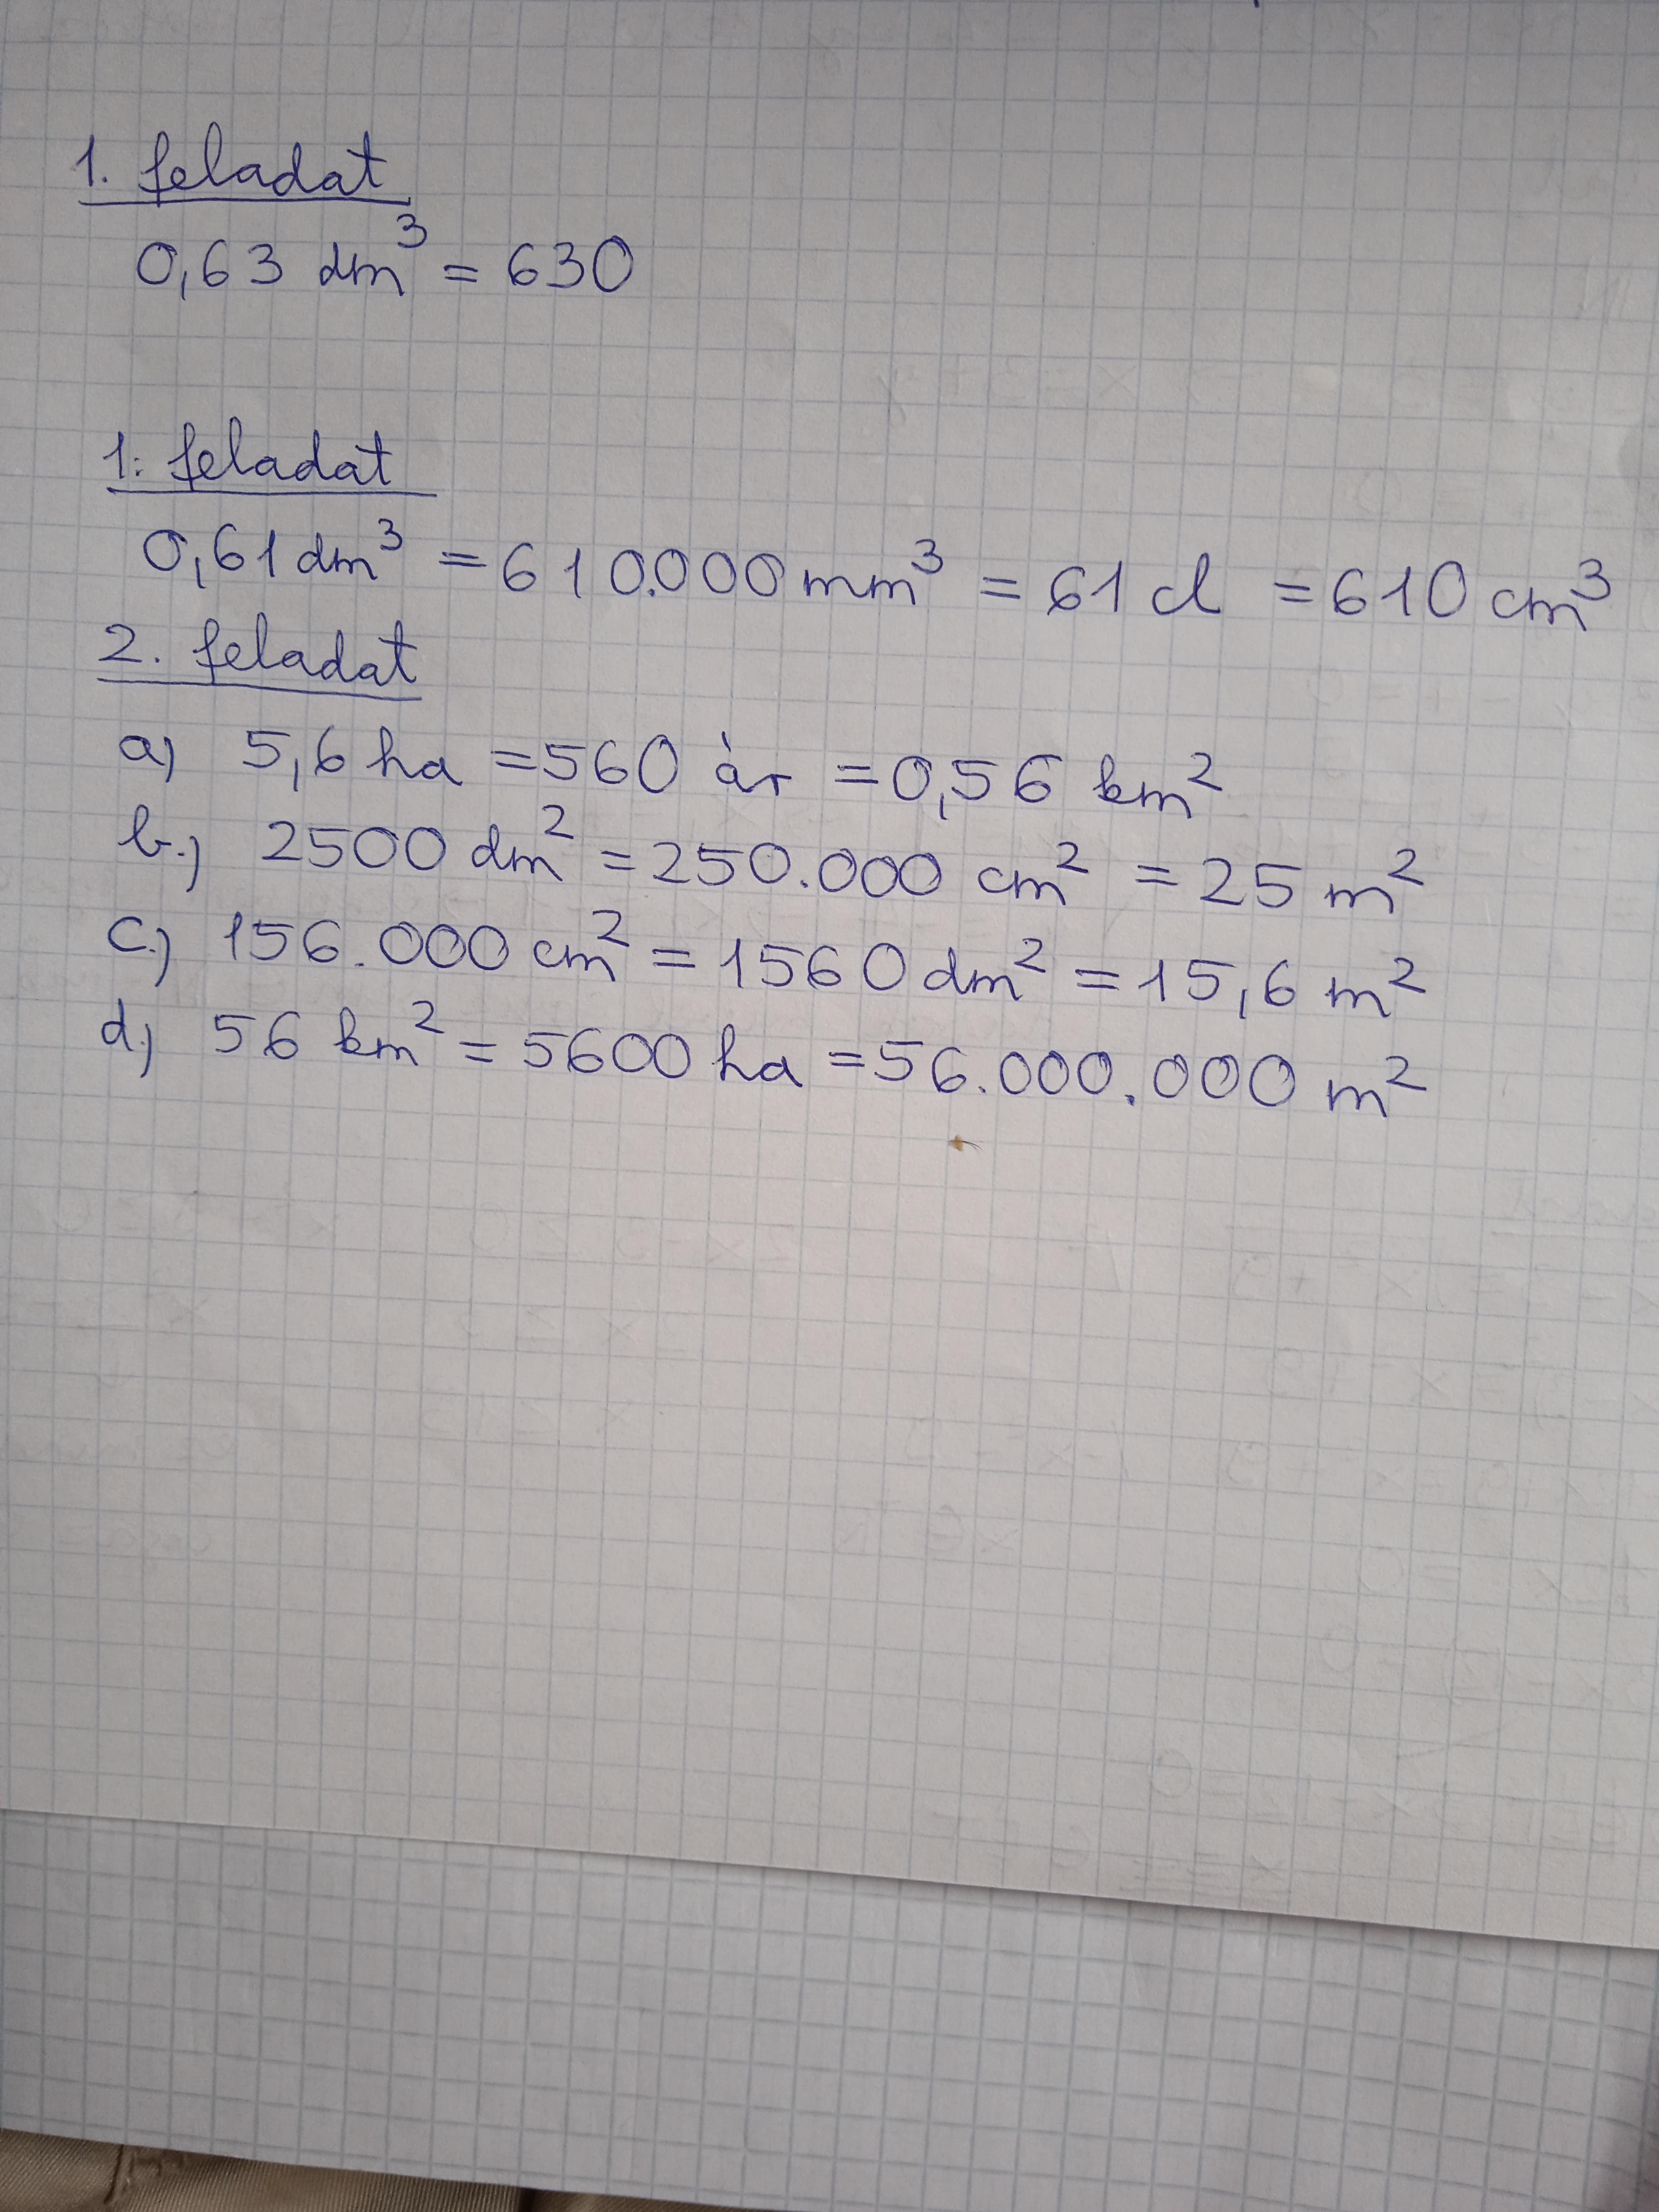 1. feladat
0,63 dm³ = 630
1. feladat
0,61 dm³ = 610.000 mm³ = 61 cl = 610 cm³
2. feladat
a) 5,6 ha = 560 àr = 0,56 km²
b.) 2500 dm² = 250.000 cm² = 25 m²
c.) 156.000 cm² = 1560 dm² = 15,6 m²
d.) 56 km² = 5600 ha = 56.000.000 m²